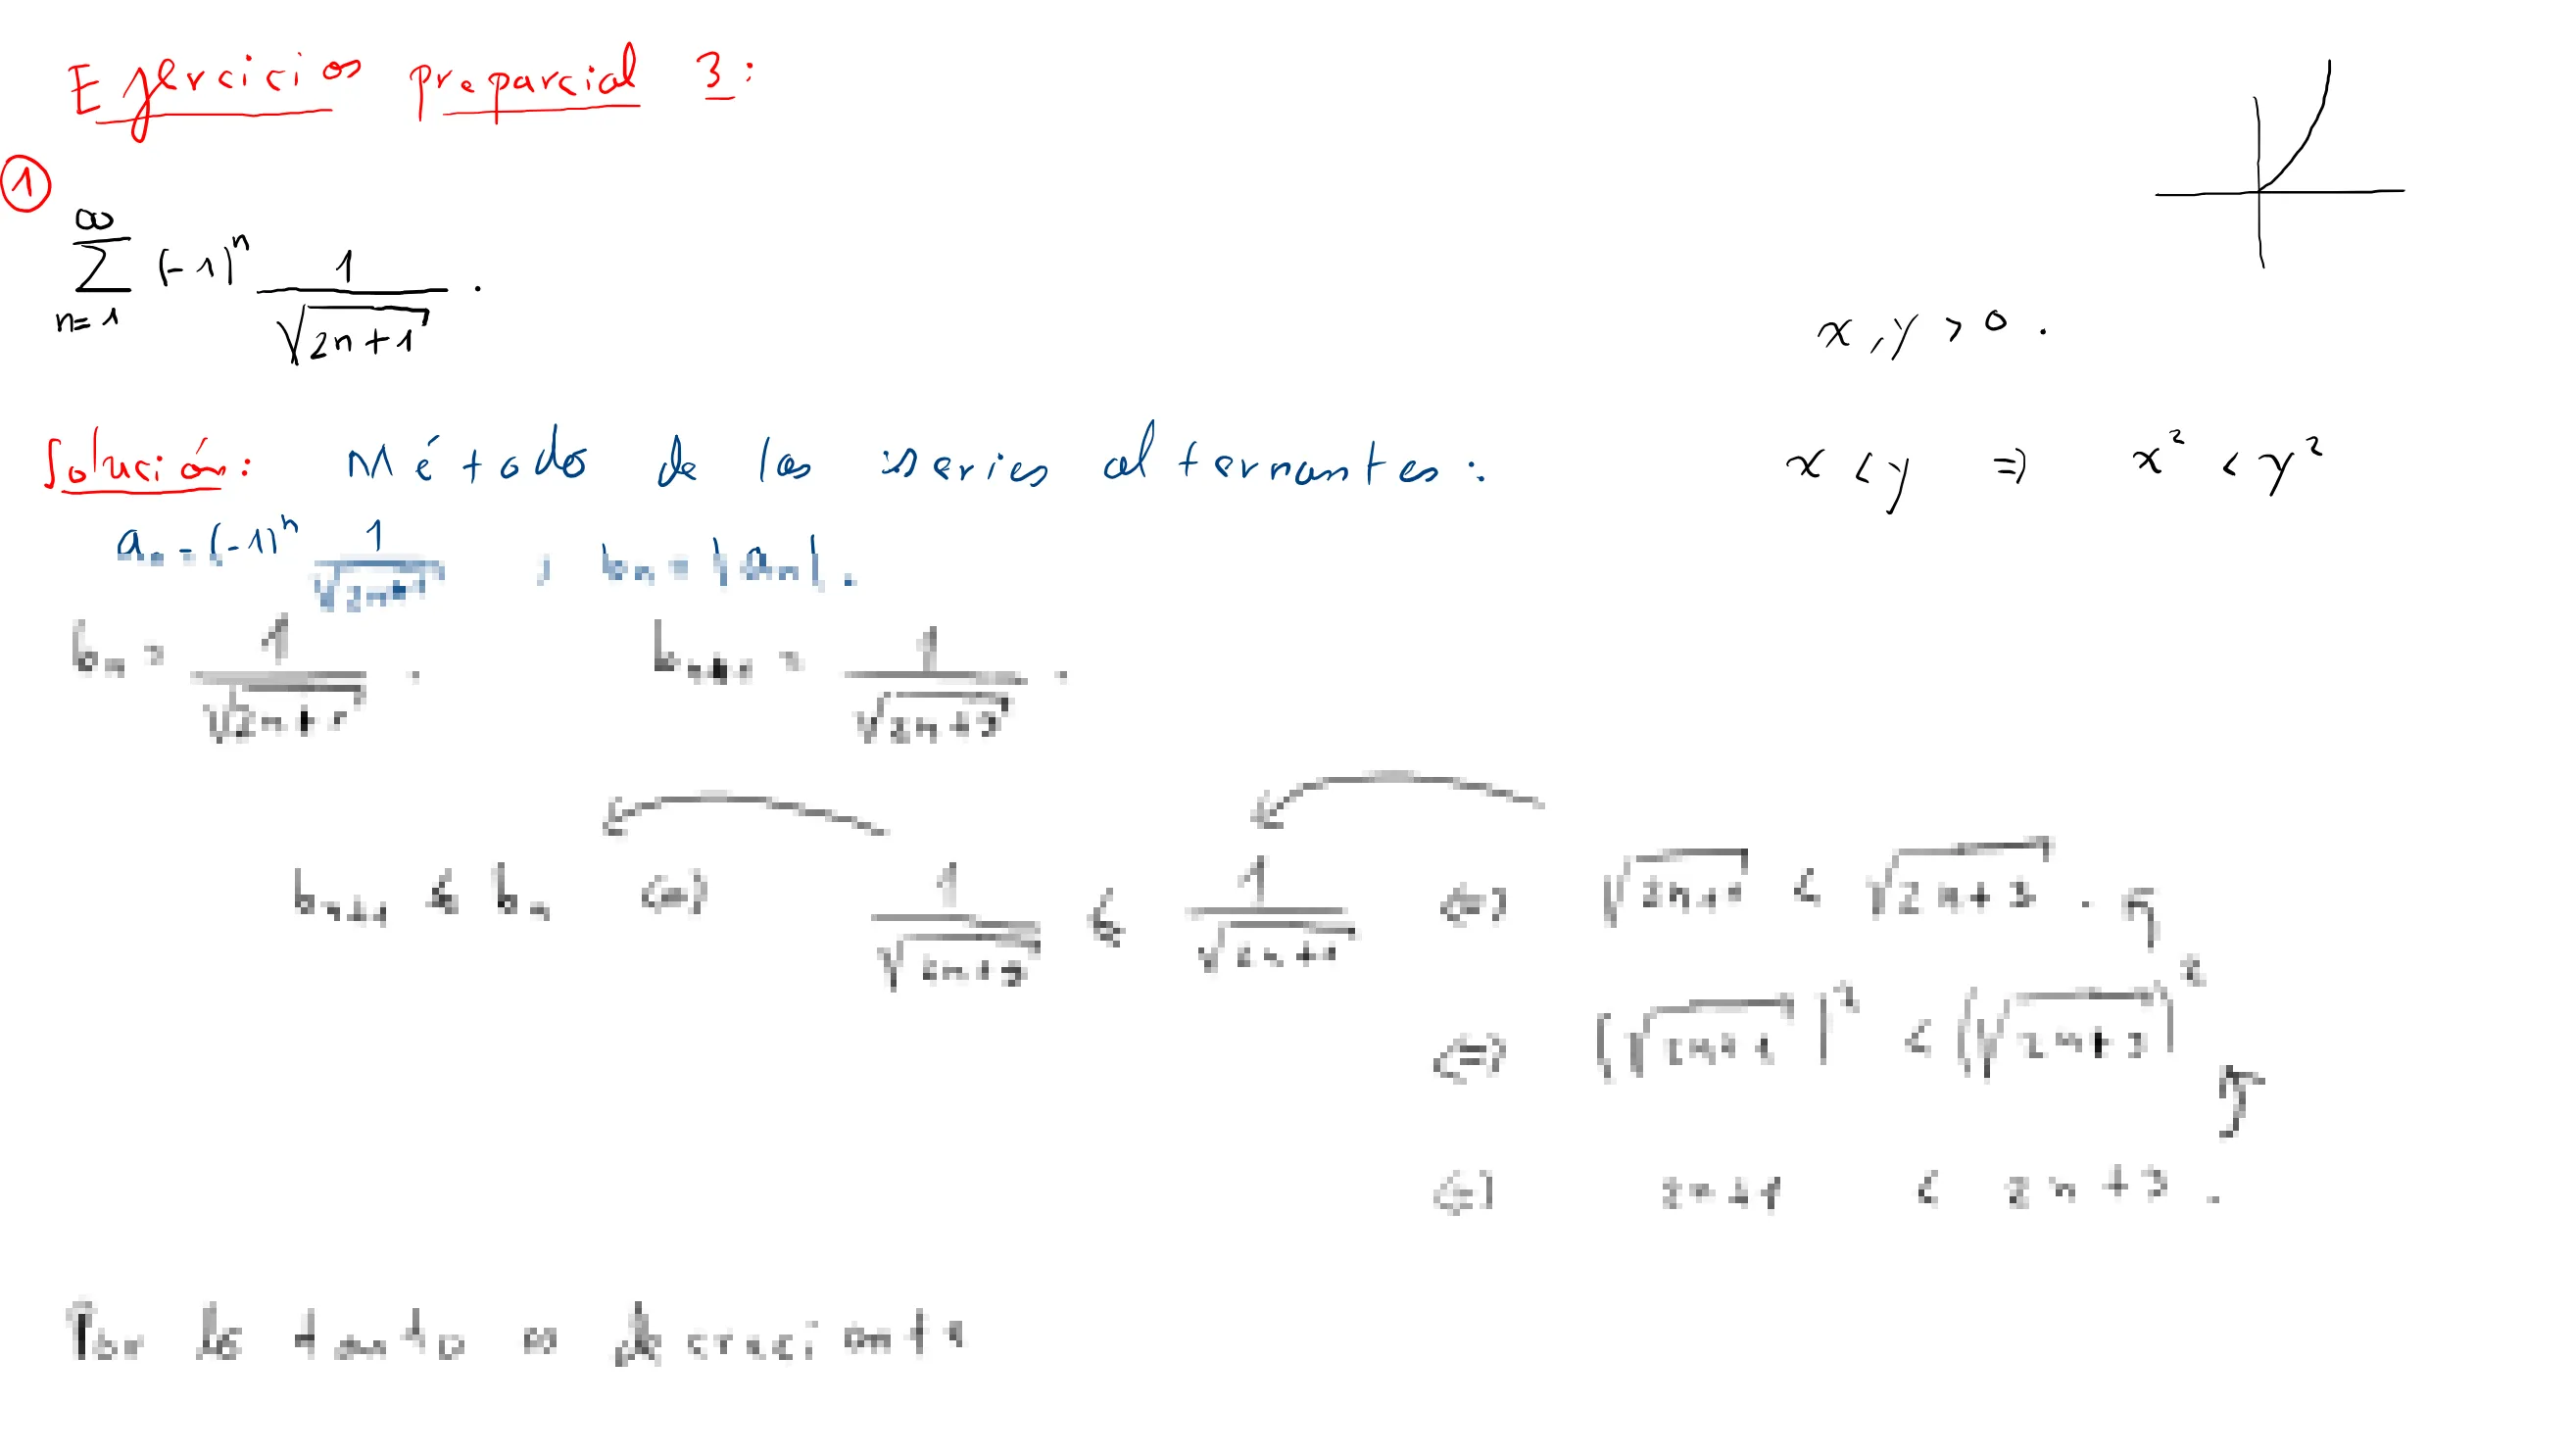 Ejercicios preparcial 3:
①
∞
∑ (-1)^n 1/√(2n+1) .
n=1
x, y > 0 .
Solución: Método de las series alternantes:
x < y ⇒ x² < y²
a_n = (-1)^n 1/√(2n+1) ; b_n = |a_n|.
b_n = 1/√(2n+1) . b_{n+1} = 1/√(2n+3) .
b_{n+1} ≤ b_n ⇔ 1/√(2n+3) ≤ 1/√(2n+1) ⇔ √(2n+1) < √(2n+3) .
⇔ (√(2n+1))² < (√(2n+3))²
⇔ 2n+1 < 2n+3 .
Por lo tanto es decreciente